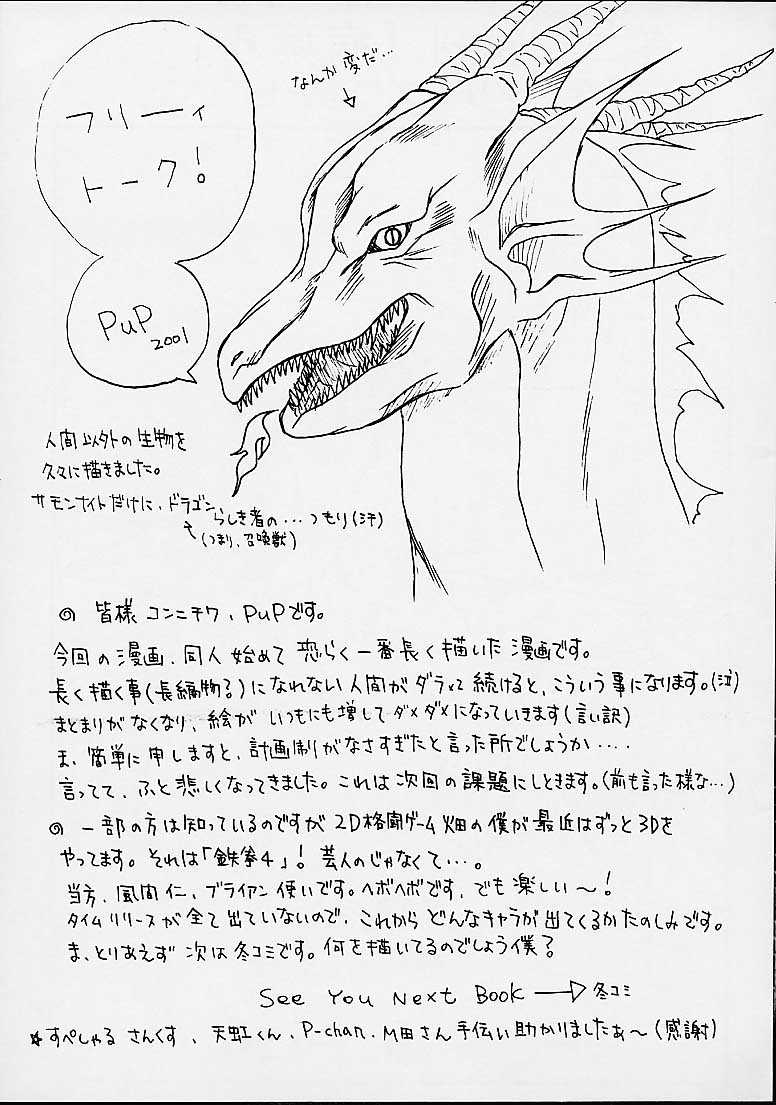 フリーィ
トーク!
PuP
2001
なんか変だ…
人間以外の生物を
久々に描きました。
サモンナイトだけに、ドラゴン
らしき者の…つもり(汗)
(つまり、召喚獣)
皆様 コンニチワ、PuPです。
今回の漫画、同人始めて 恐らく一番長く描いた漫画です。
長く描く事(長編物?)になれない人間がダラッと続けると、こういう事になります。(泣)
まとまりがなくなり、絵が いつもにも増してダメダメになっていきます(言い訳)
ま、簡単に申しますと、計画制がなさすぎたと言った所でしょうか‥‥
言ってて、ふと悲しくなってきました。これは次回の課題にしときます。(前も言った様な…)
一部の方は知っているのですが 2D格闘ゲーム畑の僕が最近はずっと3Dを
やってます。それは「鉄拳4」! 芸人のじゃなくて…。
当方、風間仁、ブライアン使いです。ヘボヘボです、でも楽しい〜!
タイムリリースが全て出ていないので、これからどんなキャラが出てくるかたのしみです。
ま、とりあえず 次は冬コミです。何を描いてるのでしょう僕?
See You Next Book → 冬コミ
☆すぺしゃる さんくす、天虹くん、P-chan、M田さん手伝い助かりましたぁ〜(感謝)